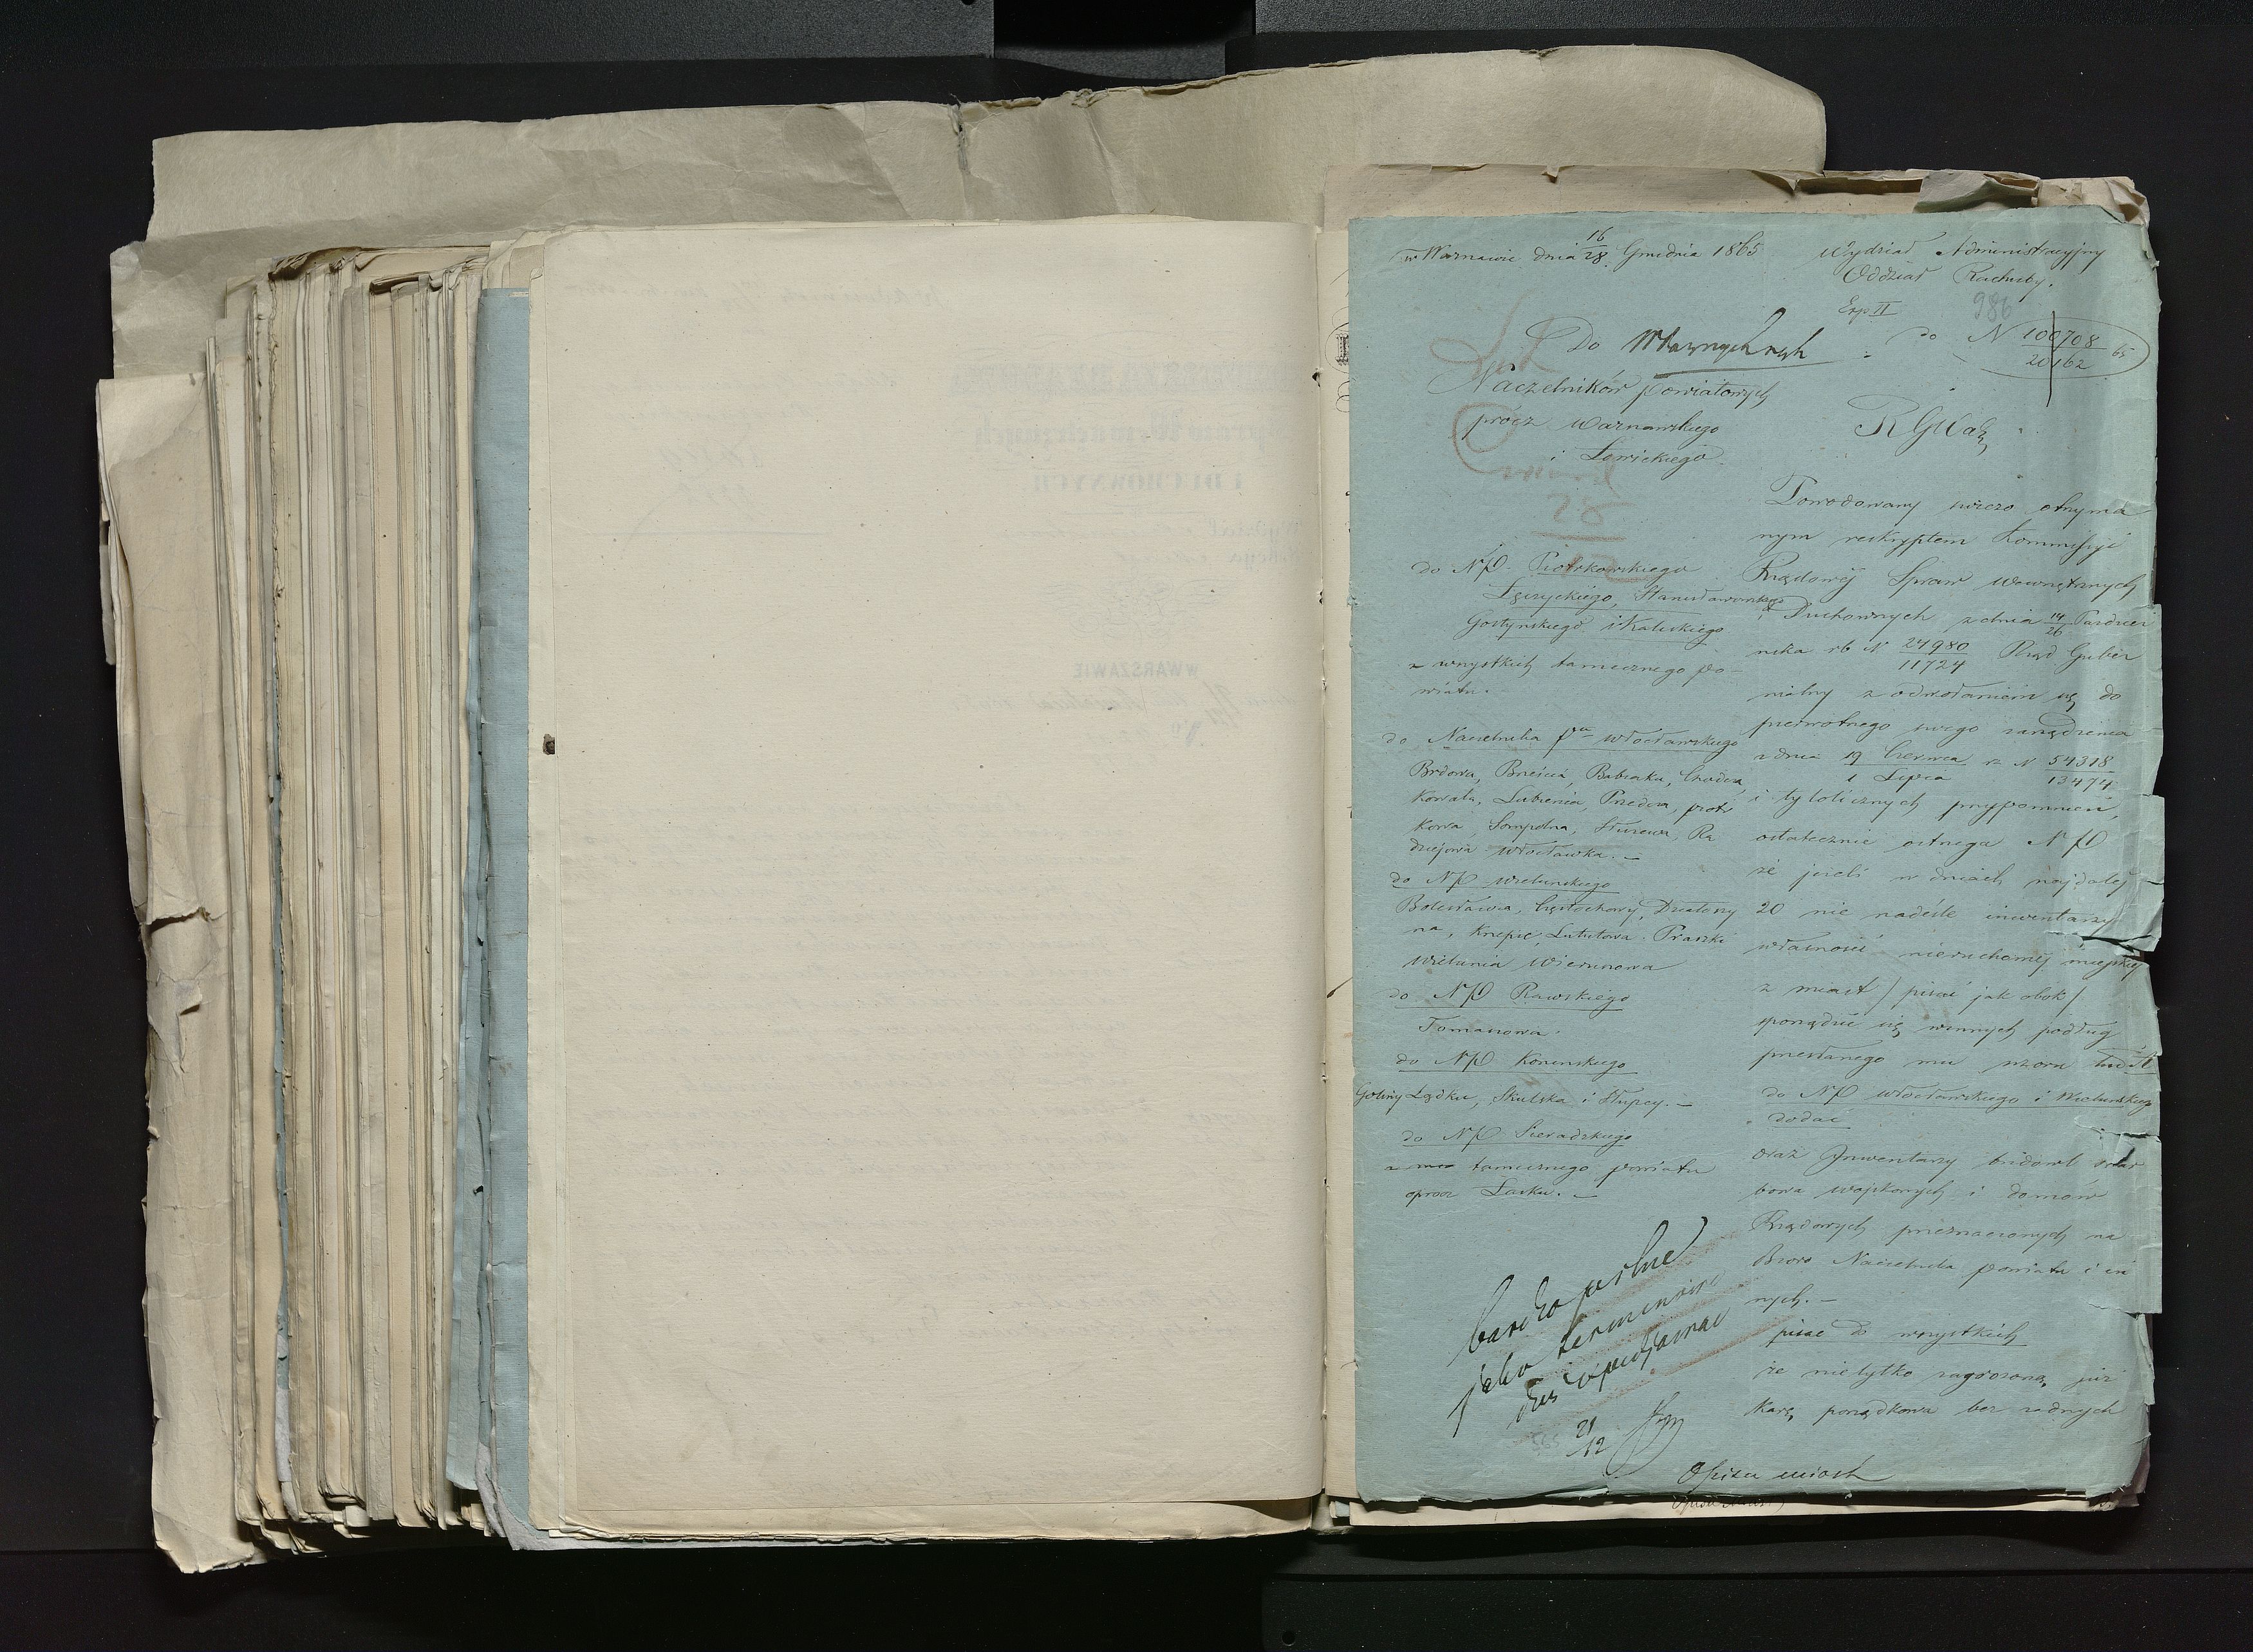 w Warszawie dnia 16/28 Grudnia 1865
Wydział Administracyjny
Oddział Rachuby.
Exp II
986
do N 100708/20162 65
Do Własnych rąk
Naczelników powiatowych
prócz Warszawskiego
i Łowickiego.
28
12
RGWa
do NP. Piotrkowskiego
Łęczyckiego, Stanisławowskiego
Gostyńskiego i Kaliskiego
z wszystkich tamecznego po-
wiatu.
do Naczelnika Ptu Włocławskiego
Brdowa, Brześcia, Babiaka, Chodcza,
Kowala, Lubienia, Przedcza, Piotr
kowa, Sompolna, Służewa, Ra
dziejowa Włocławka. –
do NP Wieluńskiego
Bolesławca, Częstochowy, Działoszy
na, Krzepic, Lututowa, Praszki
Wielunia Wieruszowa
do NP Rawskiego
Tomaszowa.
do NP Konińskiego
Goliny Lądku, Skulska i Słupcy. –
do NP Sieradzkiego
tamecznego powiatu
oprócz Łasku. –
bardzo pilne
jako terminowe
dziś wyexpedjować
21/12
Powodowany świeżo otrzyma
nym reskryptem Kommissyi
Rządowéj Spraw Wewnętrznych
i Duchownych z dnia 14/26 Paździer
nika rb N 24980/11724 Rząd Guber
nialny z odwołaniem się do
pierwotnego swego zarządzenia
z dnia 19 Czerwca/1 Lipca N 54318/13474
i tylolicznych przypomnień,
ostatecznie ostrzega NP
że jeżeli w dniach najdaléj
20 nie nadeśle inwentarzy
własności nieruchoméj miejskiéj
z miast / pisać jak obok /
sporządzić się winnych podług
przesłanego mu wzoru
do NP Włocławskiego i Wieluńskiego
dodać
oraz Inwentarzy budowli skar
bowo wojskowych i domów
Rządowych przeznaczonych na
Biuro Naczelnika powiatu i in
nych. –
pisać do wszystkich
że nietylko zagrożoną już
karę porządkową bez żadnych
Opisu miast